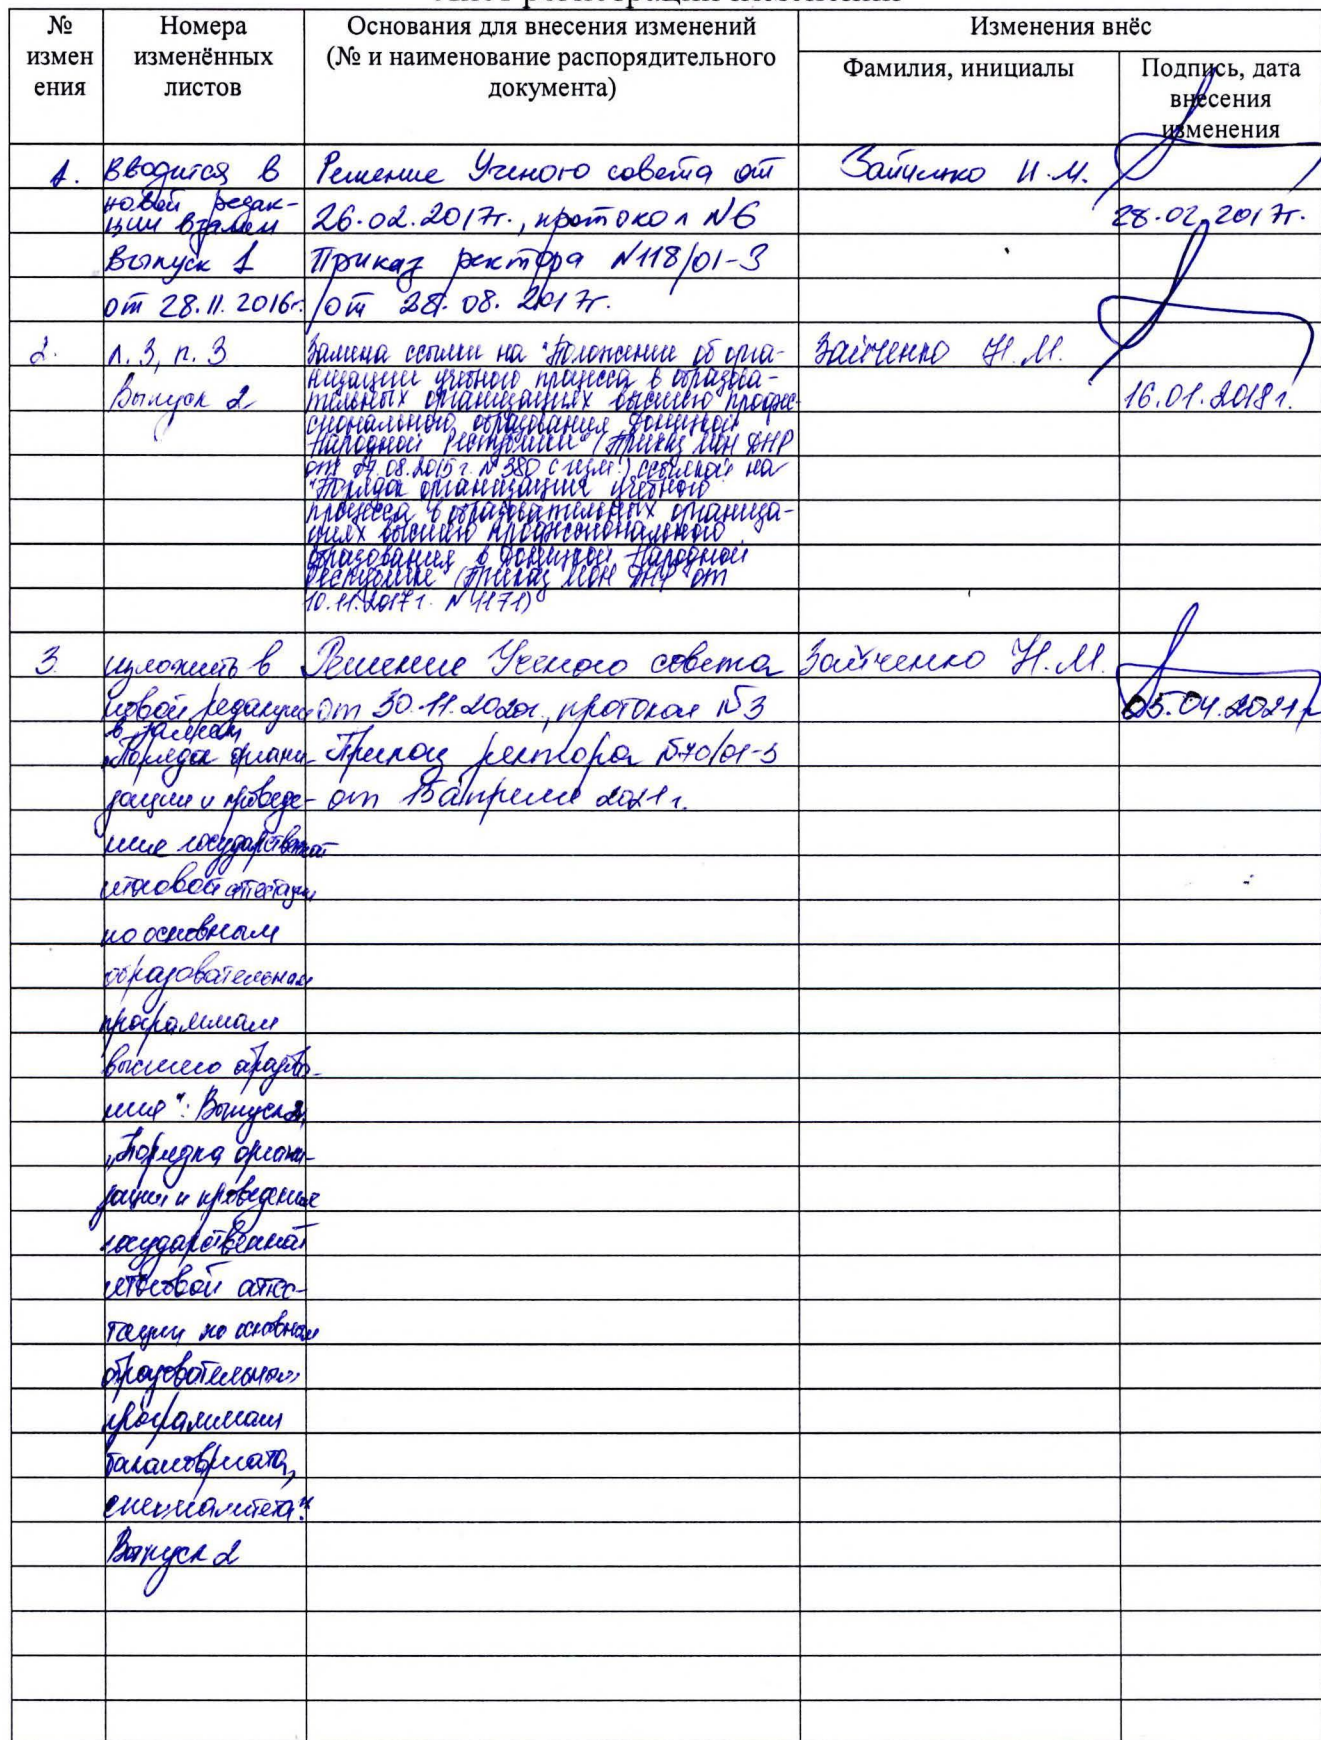 № измен ения
Номера изменённых листов
Основания для внесения изменений (№ и наименование распорядительного документа)
Изменения внёс
Фамилия, инициалы
Подпись, дата внесения изменения
1.
Вводится в
новой редак-
ции взамен
Выпуск 1
от 28.11.2016г.
Решение Ученого совета от
26.02.2017г., протокол №6
Приказ ректора №118/01-3
от 28.08.2017г.
Зайченко Н.М.
28.02.2017г.
2.
л. 3, п. 3
Выпуск 2
Замена ссылки на "Положение об орга-
низации учебного процесса в образова-
тельных организациях высшего профес-
сионального образования Донецкой
Народной Республики" (Приказ МОН ДНР
от 07.08.2015г. №380 с изм.) ссылкой на
"Порядок организации учебного
процесса в образовательных организа-
циях высшего профессионального
образования в Донецкой Народной
Республике (Приказ МОН ДНР от
10.11.2017г. №1171)
Зайченко Н.М.
16.01.2018г.
3
изложить в
новой редакции
взамен
"Порядок органи-
зации и проведе-
ния государственной
итоговой аттестации
по основным
образовательным
программам
высшего образова-
ния". Выпуск 2,
"Порядка органи-
зации и проведения
государственной
итоговой аттес-
тации по основным
образовательным
программам
бакалавриата,
специалитета".
Выпуск 2
Решение Ученого совета
от 30.11.2020г., протокол №3
Приказ ректора №70/01-3
от 15 апреля 2021г.
Зайченко Н.М.
05.04.2021г